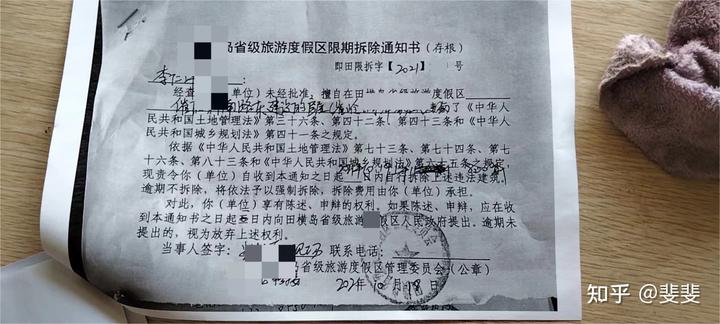 岛省级旅游度假区限期拆除通知书（存根）
即田限拆字【2021】 号
李仁
经查 （单位）未经批准，擅自在田横岛省级旅游度假区
了《中华人
民共和国土地管理法》第三十六条、第四十二条、第四十三条和《中华人
民共和国城乡规划法》第四十一条之规定。
依据《中华人民共和国土地管理法》第七十三条、第七十四条、第七
十六条、第八十三条和《中华人民共和国城乡规划法》第六十五条之规定，
现责令你（单位）自收到本通知之日起 日内自行拆除上述违法建筑。
逾期不拆除，将依法予以强制拆除，拆除费用由你（单位）承担。
对此，你（单位）享有陈述、申辩的权利。如果陈述、申辩，应在收
到本通知书之日起三日内向田横岛省级旅游 假区人民政府提出。逾期未
提出的，视为放弃上述权利。
当事人签字： 联系电话：
岛省级旅游度假区管理委员会（公章）
2021年10月18日
知乎 @斐斐